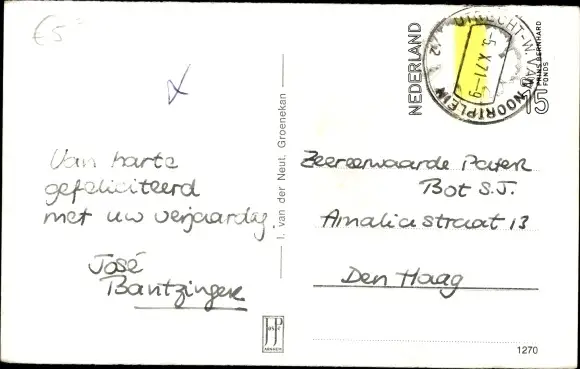 €5
Van harte
gefeliciteerd
met uw verjaardag.
José
Bantzinger
I. van der Neut. Groenekan
JosPé
ARNHEM
NEDERLAND
UTRECHT-W.VAN NOORTPLEIN
-5.X.71-9
PRINS BERNHARD
FONDS
15
Zeereerwaarde Pater
Bot S.J.
Amaliastraat 13
Den Haag
1270